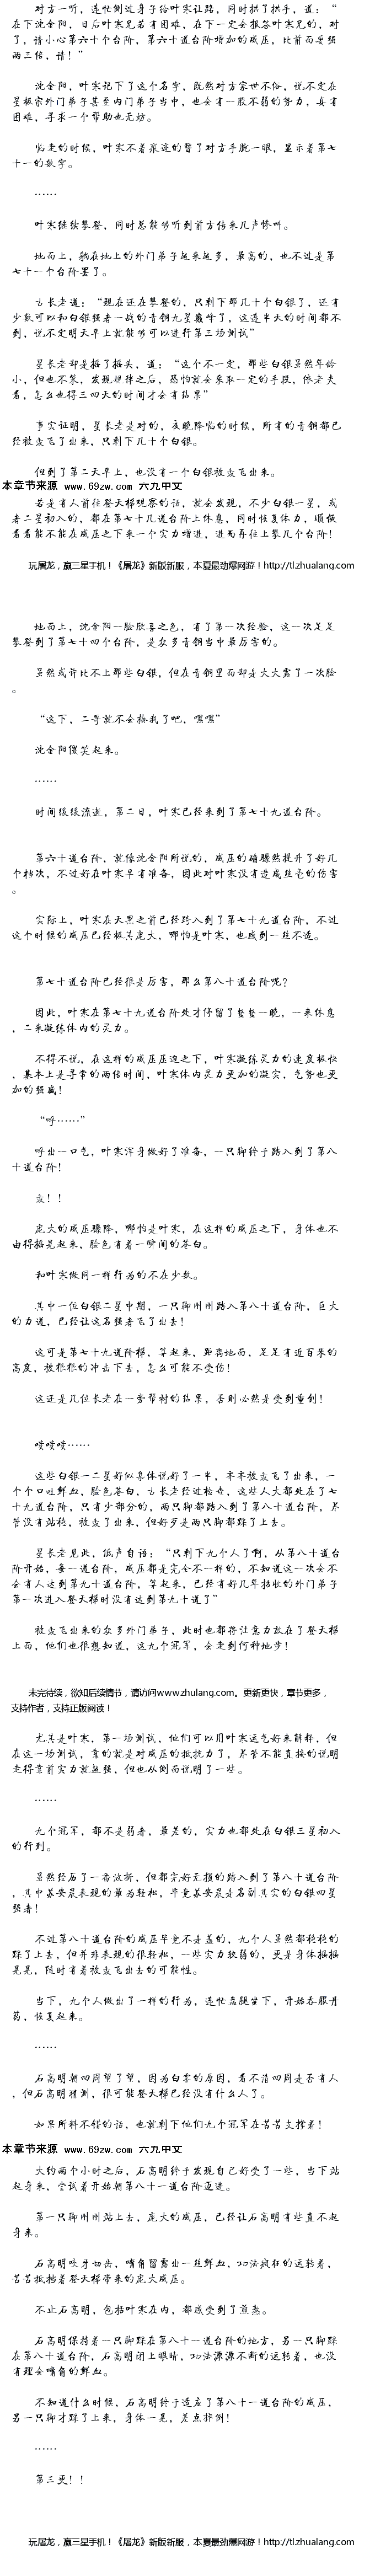 对方一听，连忙侧过身子给叶寒让路，同时拱了拱手，道：“
在下沈金阳，日后叶寒兄若有困难，在下一定会报答叶寒兄的，对
了，请小心第六十个台阶，第六十道台阶增加的威压，比前面要强
两三倍，请！”
沈金阳，叶寒记下了这个名字，既然对方家世不俗，说不定在
星极宗外门弟子甚至内门弟子当中，也会有一股不弱的势力，真有
困难，寻求一个帮助也无妨。
临走的时候，叶寒不着痕迹的瞥了对方手腕一眼，显示着第七
十一的数字。
……
叶寒继续攀登，同时总能够听到前方传来几声惨叫。
地面上，躺在地上的外门弟子越来越多，最高的，也不过是第
七十一个台阶罢了。
古长老道：“现在还在攀登的，只剩下那几十个白银了，还有
少数可以和白银强者一战的青铜九星巅峰了，这连半天的时间都不
到，说不定明天早上就能够可以进行第三场测试”
星长老却是摇了摇头，道：“这个不一定，那些白银虽然年龄
小，但也不笨，发现规律之后，恐怕就会采取一定的手段，依老夫
看，怎么也得三四天的时间才会有结果”
事实证明，星长老是对的，夜晚降临的时候，所有的青铜都已
经被轰飞了出来，只剩下几十个白银。
但到了第二天早上，也没有一个白银被轰飞出来。
本章节来源 www.69zw.com 六九中文
若是有人前往登天梯观察的话，就会发现，不少白银一星，或
者二星初入的，都在第七十几道台阶上休息，同时恢复体力，顺便
看看能不能在威压之下来一个实力增进，进而再往上攀几个台阶！
玩屠龙，赢三星手机！《屠龙》新版新服，本夏最劲爆网游！http://tl.zhualang.com
地面上，沈金阳一脸欣喜之色，有了第一次经验，这一次足足
攀登到了第七十四个台阶，是众多青铜当中最厉害的。
虽然或许比不上那些白银，但在青铜里面却是大大露了一次脸
。
“这下，二哥就不会揍我了吧，嘿嘿”
沈金阳傻笑起来。
……
时间缓缓流逝，第二日，叶寒已经来到了第七十九道台阶。
第六十道台阶，就像沈金阳所说的，威压的确骤然提升了好几
个档次，不过好在叶寒早有准备，因此对叶寒没有造成丝毫的伤害
。
实际上，叶寒在天黑之前已经跨入到了第七十九道台阶，不过
这个时候的威压已经极其庞大，哪怕是叶寒，也感到一丝不适。
第七十道台阶已经很是厉害，那么第八十道台阶呢？
因此，叶寒在第七十九道台阶处才停留了整整一晚，一来休息
，二来凝练体内的灵力。
不得不说，在这样的威压压迫之下，叶寒凝练灵力的速度极快
，基本上是寻常的两倍时间，叶寒体内灵力更加的凝实，气势也更
加的强盛！
“呼……”
呼出一口气，叶寒浑身做好了准备，一只脚终于踏入到了第八
十道台阶！
轰！！
庞大的威压骤降，哪怕是叶寒，在这样的威压之下，身体也不
由得摇晃起来，脸色有着一瞬间的苍白。
和叶寒做同一样行为的不在少数。
其中一位白银二星中期，一只脚刚刚踏入第八十道台阶，巨大
的力道，已经让这名强者飞了出去！
这可是第七十九道阶梯，算起来，距离地面，足足有近百米的
高度，被狠狠的冲击下去，怎么可能不受伤！
这还是几位长老在一旁帮衬的结果，否则必然是受到重创！
噗噗噗……
这些白银一二星好似集体说好了一半，齐齐被轰飞了出来，一
个个口吐鲜血，脸色苍白，古长老经过检查，这些人大都处在了七
十九道台阶，只有少部分的，两只脚都踏入到了第八十道台阶，尽
管没有站稳，被轰了出来，但好歹是两只脚都踩了上去。
星长老见此，低声自语：“只剩下九个人了啊，从第八十道台
阶开始，每一道台阶，威压都是完全不一样的，不知道这一次会不
会有人达到第九十道台阶，算起来，已经有好几年招收的外门弟子
第一次进入登天梯时没有达到第九十道了”
被轰飞出来的众多外门弟子，此时也都将注意力放在了登天梯
上面，他们也很想知道，这九个冠军，会走到何种地步！
未完待续，欲知后续情节，请访问www.zhulang.com。更新更快，章节更多，
支持作者，支持正版阅读！
尤其是叶寒，第一场测试，他们可以用叶寒运气好来解释，但
在这一场测试，靠的就是对威压的抵抗力了，尽管不能直接的说明
走得靠前实力就越强，但也从侧面说明了一些。
……
九个冠军，都不是弱者，最差的，实力也都处在白银三星初入
的行列。
虽然经历了一番波折，但都完好无损的踏入到了第八十道台阶
，其中慕安晨表现的最为轻松，毕竟慕安晨是名副其实的白银四星
强者！
不过第八十道台阶的威压毕竟不是盖的，九个人虽然都稳稳的
踩了上去，但并非表现的很轻松，一些实力较弱的，更是身体摇摇
晃晃，随时有着被轰飞出去的可能性。
当下，九个人做出了一样的行为，连忙盘腿坐下，开始吞服丹
药，恢复起来。
……
石高明朝四周望了望，因为白雾的原因，看不清四周是否有人
，但石高明猜测，很可能登天梯已经没有什么人了。
如果所料不错的话，也就剩下他们九个冠军在苦苦支撑着！
本章节来源 www.69zw.com 六九中文
大约两个小时之后，石高明终于发现自己好受了一些，当下站
起身来，尝试着开始朝第八十一道台阶迈进。
第一只脚刚刚站上去，庞大的威压，已经让石高明有些直不起
身来。
石高明咬牙切齿，嘴角留露出一丝鲜血，功法疯狂的运转着，
苦苦抵挡着登天梯带来的庞大威压。
不止石高明，包括叶寒在内，都感受到了煎熬。
石高明保持着一只脚踩在第八十一道台阶的地方，另一只脚踩
在第八十道台阶，石高明闭上眼睛，功法源源不断的运转着，也没
有理会嘴角的鲜血。
不知道什么时候，石高明终于适应了第八十一道台阶的威压，
另一只脚才踩了上来，身体一晃，差点摔倒！
……
第三更！！
玩屠龙，赢三星手机！《屠龙》新版新服，本夏最劲爆网游！http://tl.zhualang.com